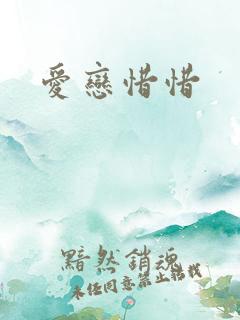 愛戀惜惜
黯然銷魂
未經同意禁止轉載